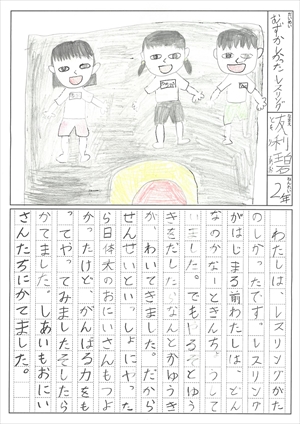 むずかしかったレスリング
2年
わたしは、レスリングがた
のしかったです。レスリング
がはじまる前わたしは、どん
なのかなーときんちょうして
いました。でもやるぞとゆう
きをだしたらなんとかゆうき
が、わいてきました。だから
せんせいといっしょにやった
ら日体大のおにいさんもつよ
かったけど、がんばる力をも
ってやってみましたそしたら
かてました。しあいもおにい
さんたちにかてました。